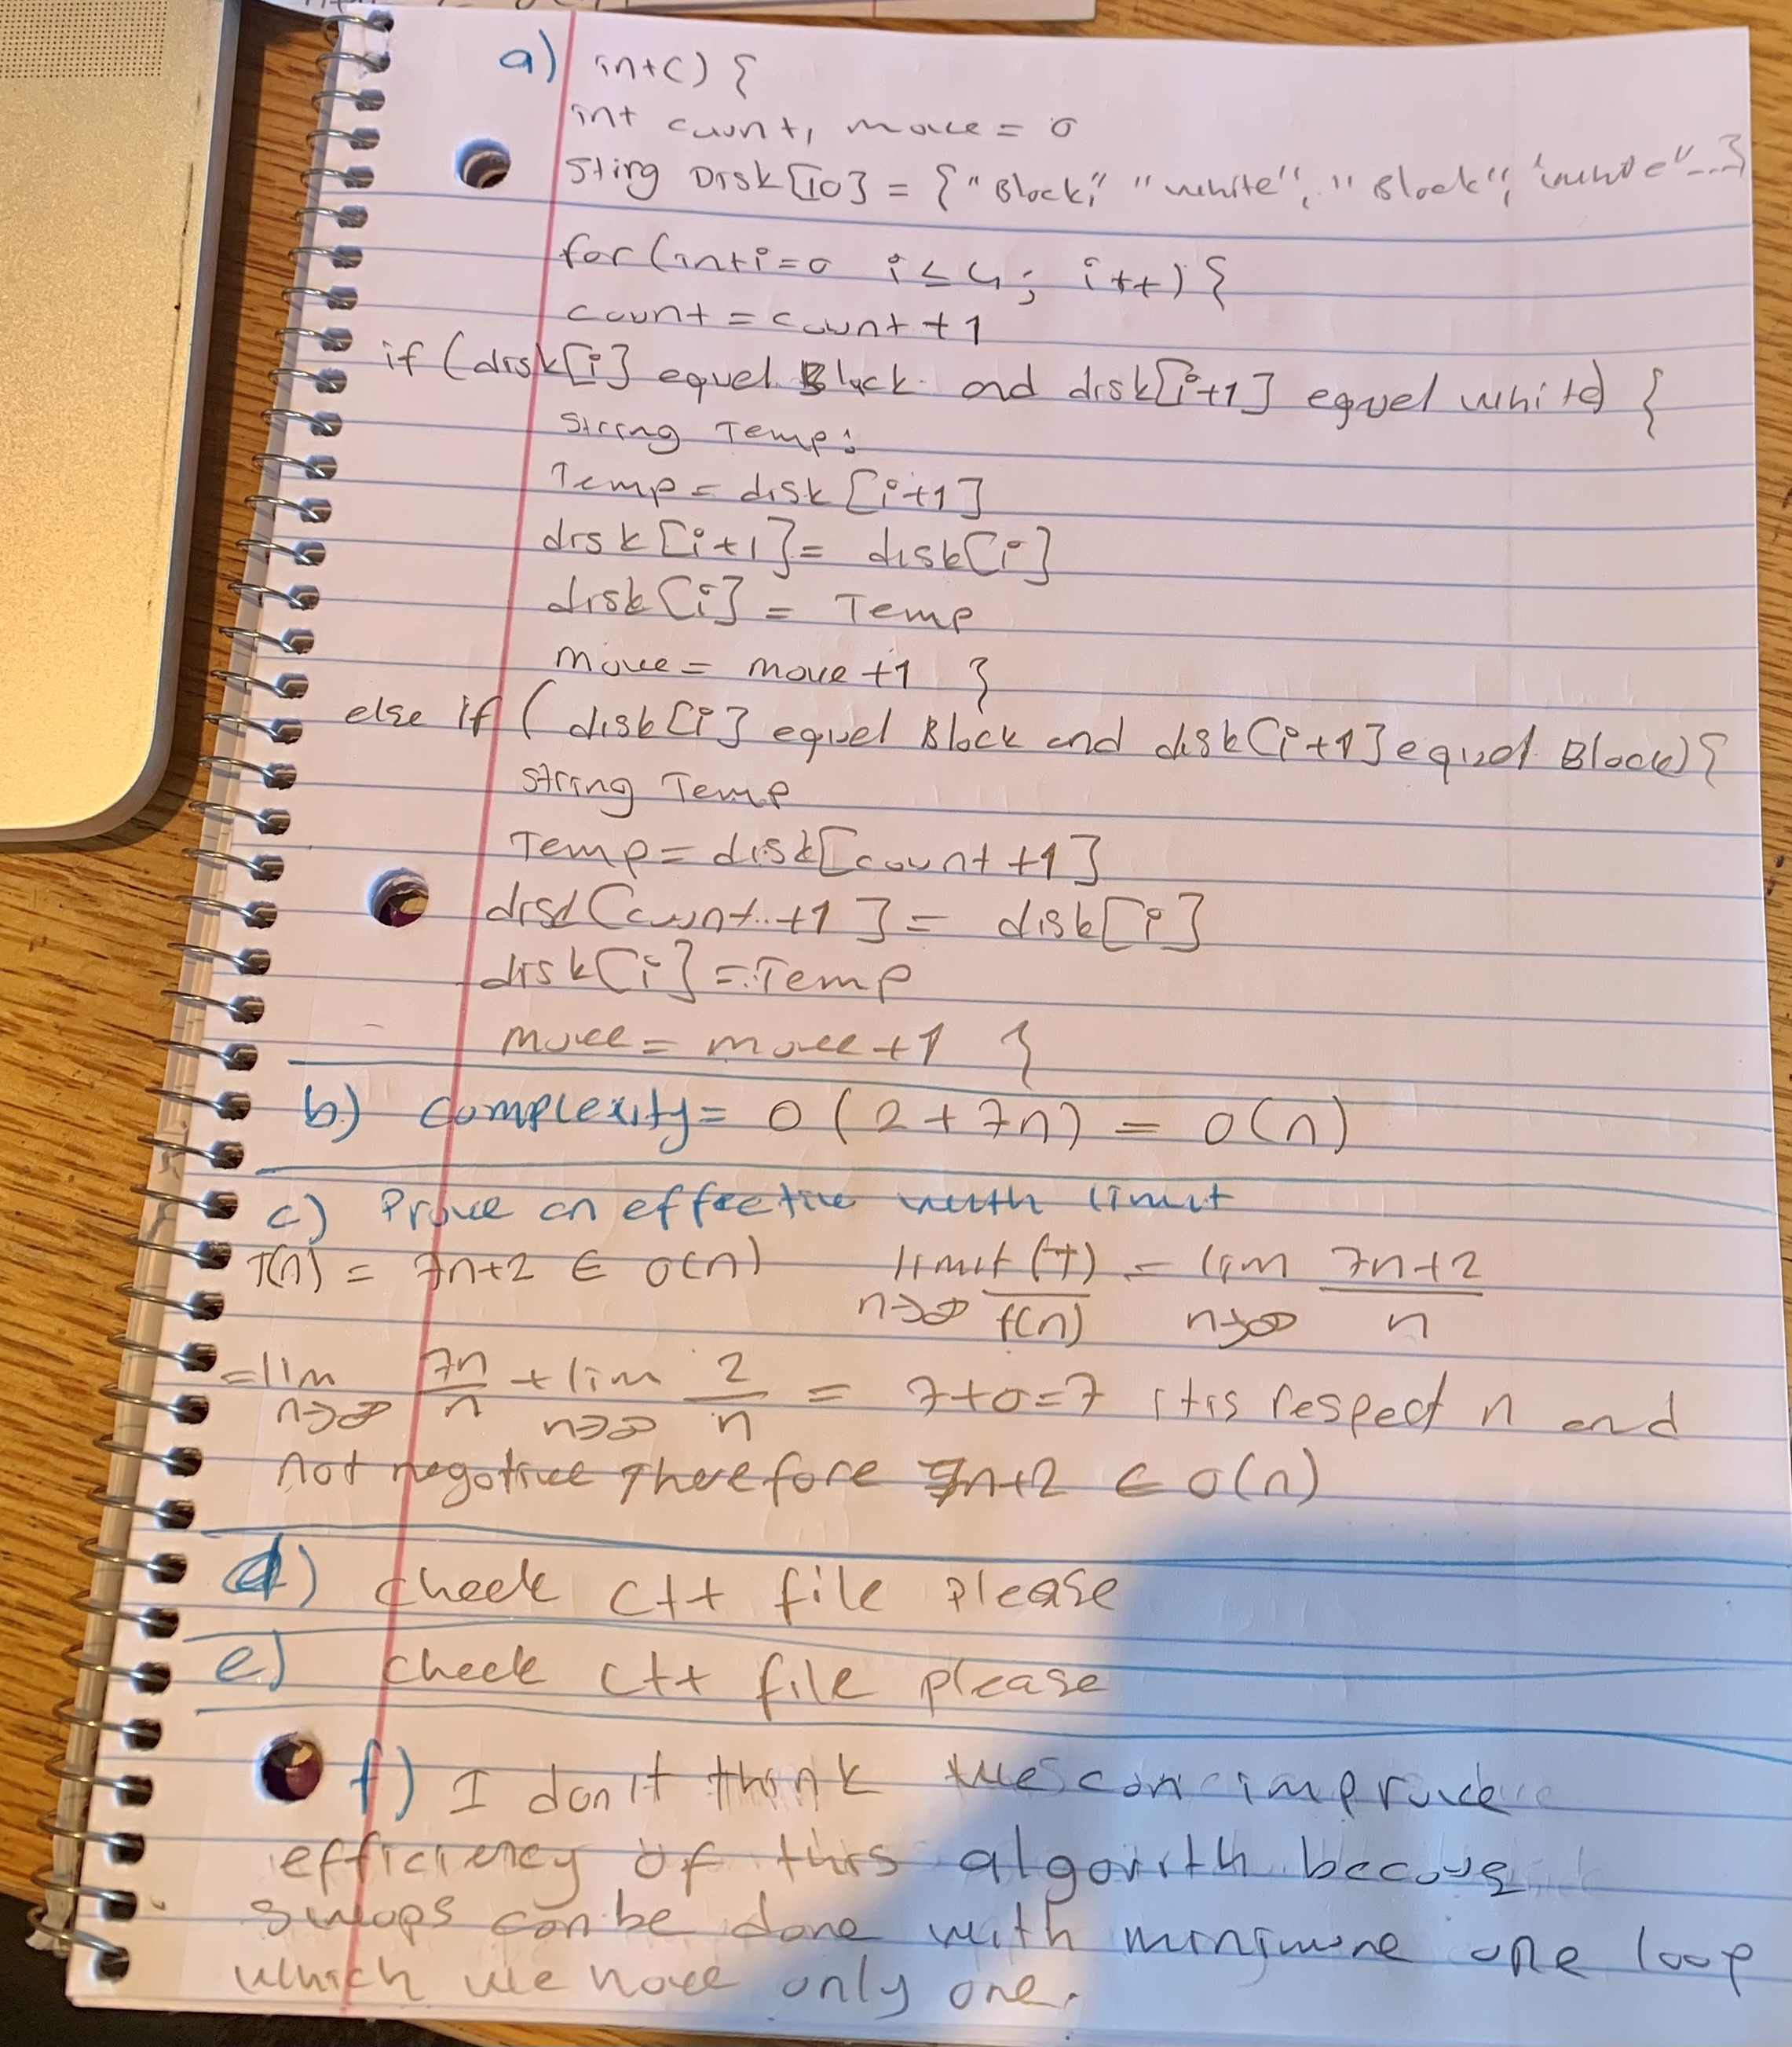 a) int() {
int count, move = 0
Stirg Disk[10] = {"Block", "white", "Block", "white"...}
for (int i=0 i≤4; i++) {
count = count +1
if (disk[i] equel Black and disk[i+1] equel white) {
String Temp;
Temp = disk [i+1]
disk [i+1] = disk[i]
disk[i] = Temp
move = move +1 }
else if ( disk[i] equel Block and disk[i+1] equel Block) {
string Temp
Temp = disk[count +1]
disk[count +1] = disk[i]
disk[i] = Temp
move = move +1 }
b) complexity = O (2 + 7n) = O(n)
c) Prove an effective with limit
T(n) = 7n+2 ∈ O(n) limit n→∞ (T)/f(n) = lim n→∞ 7n+2/n
= lim n→∞ 7n/n + lim n→∞ 2/n = 7+0=7 it is respect n and
not negative Therefore 7n+2 ∈ O(n)
d) check C++ file please
e) check C++ file please
f) I don't think we can improve
efficiency of this algorith because
swaps can be done with minimum one loop
which we have only one.